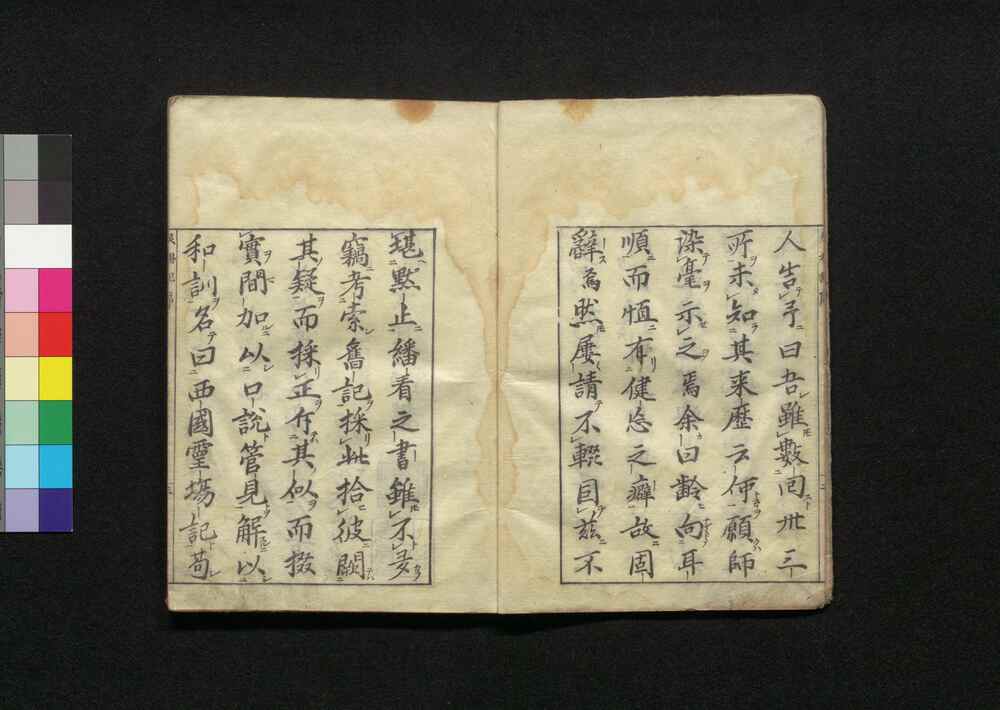 人告予曰吾雖數回卅三
所未知其来歴云何願師
染毫示之焉余曰齡向耳
順而恒有健忘之癖故固
辭為然屡請不輟因茲不
堪黙止繙看之書雖不多
竊考索舊記採此拾彼闕
其疑而採正弁其似而掇
實間加以口說管見解以
和訓名曰西國霊場記苟